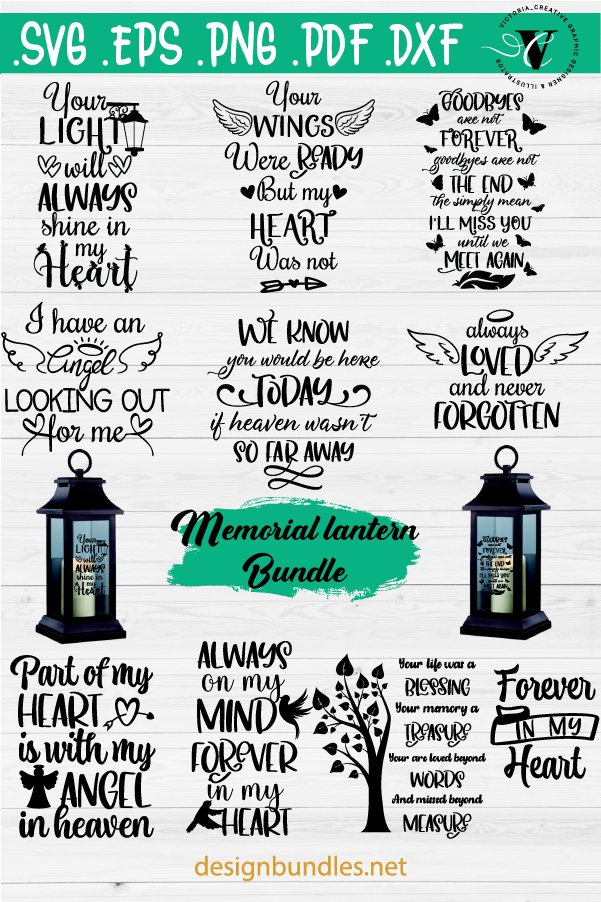 .SVG .EPS .PNG .PDF .DXF
VICTORIA_CREATIVE GRAPHIC DESIGNER & ILLUSTRATOR
VC
Your
LIGHT
will
ALWAYS
shine in
my
Heart
Your
WINGS
Were READY
But my
HEART
Was not
GOODBYES
are not
FOREVER
goodbyes are not
THE END
the simply mean
I'LL MISS YOU
until we
MEET AGAIN
I have an
Angel
LOOKING OUT
for me
WE KNOW
you would be here
TODAY
if heaven wasn't
SO FAR AWAY
always
LOVED
and never
FORGOTTEN
Your
LIGHT
will
ALWAYS
shine in
my
Heart
Memorial lantern
Bundle
GOODBYES
are not
FOREVER
goodbyes are not
THE END
the simply mean
I'LL MISS YOU
until we
MEET AGAIN
Part of my
HEART
is with my
ANGEL
in heaven
ALWAYS
on my
MIND
FOREVER
in my
HEART
Your life was a
BLESSING
Your memory a
TREASURE
Your are loved beyond
WORDS
And missed beyond
MEASURE
Forever
IN MY
Heart
designbundles.net